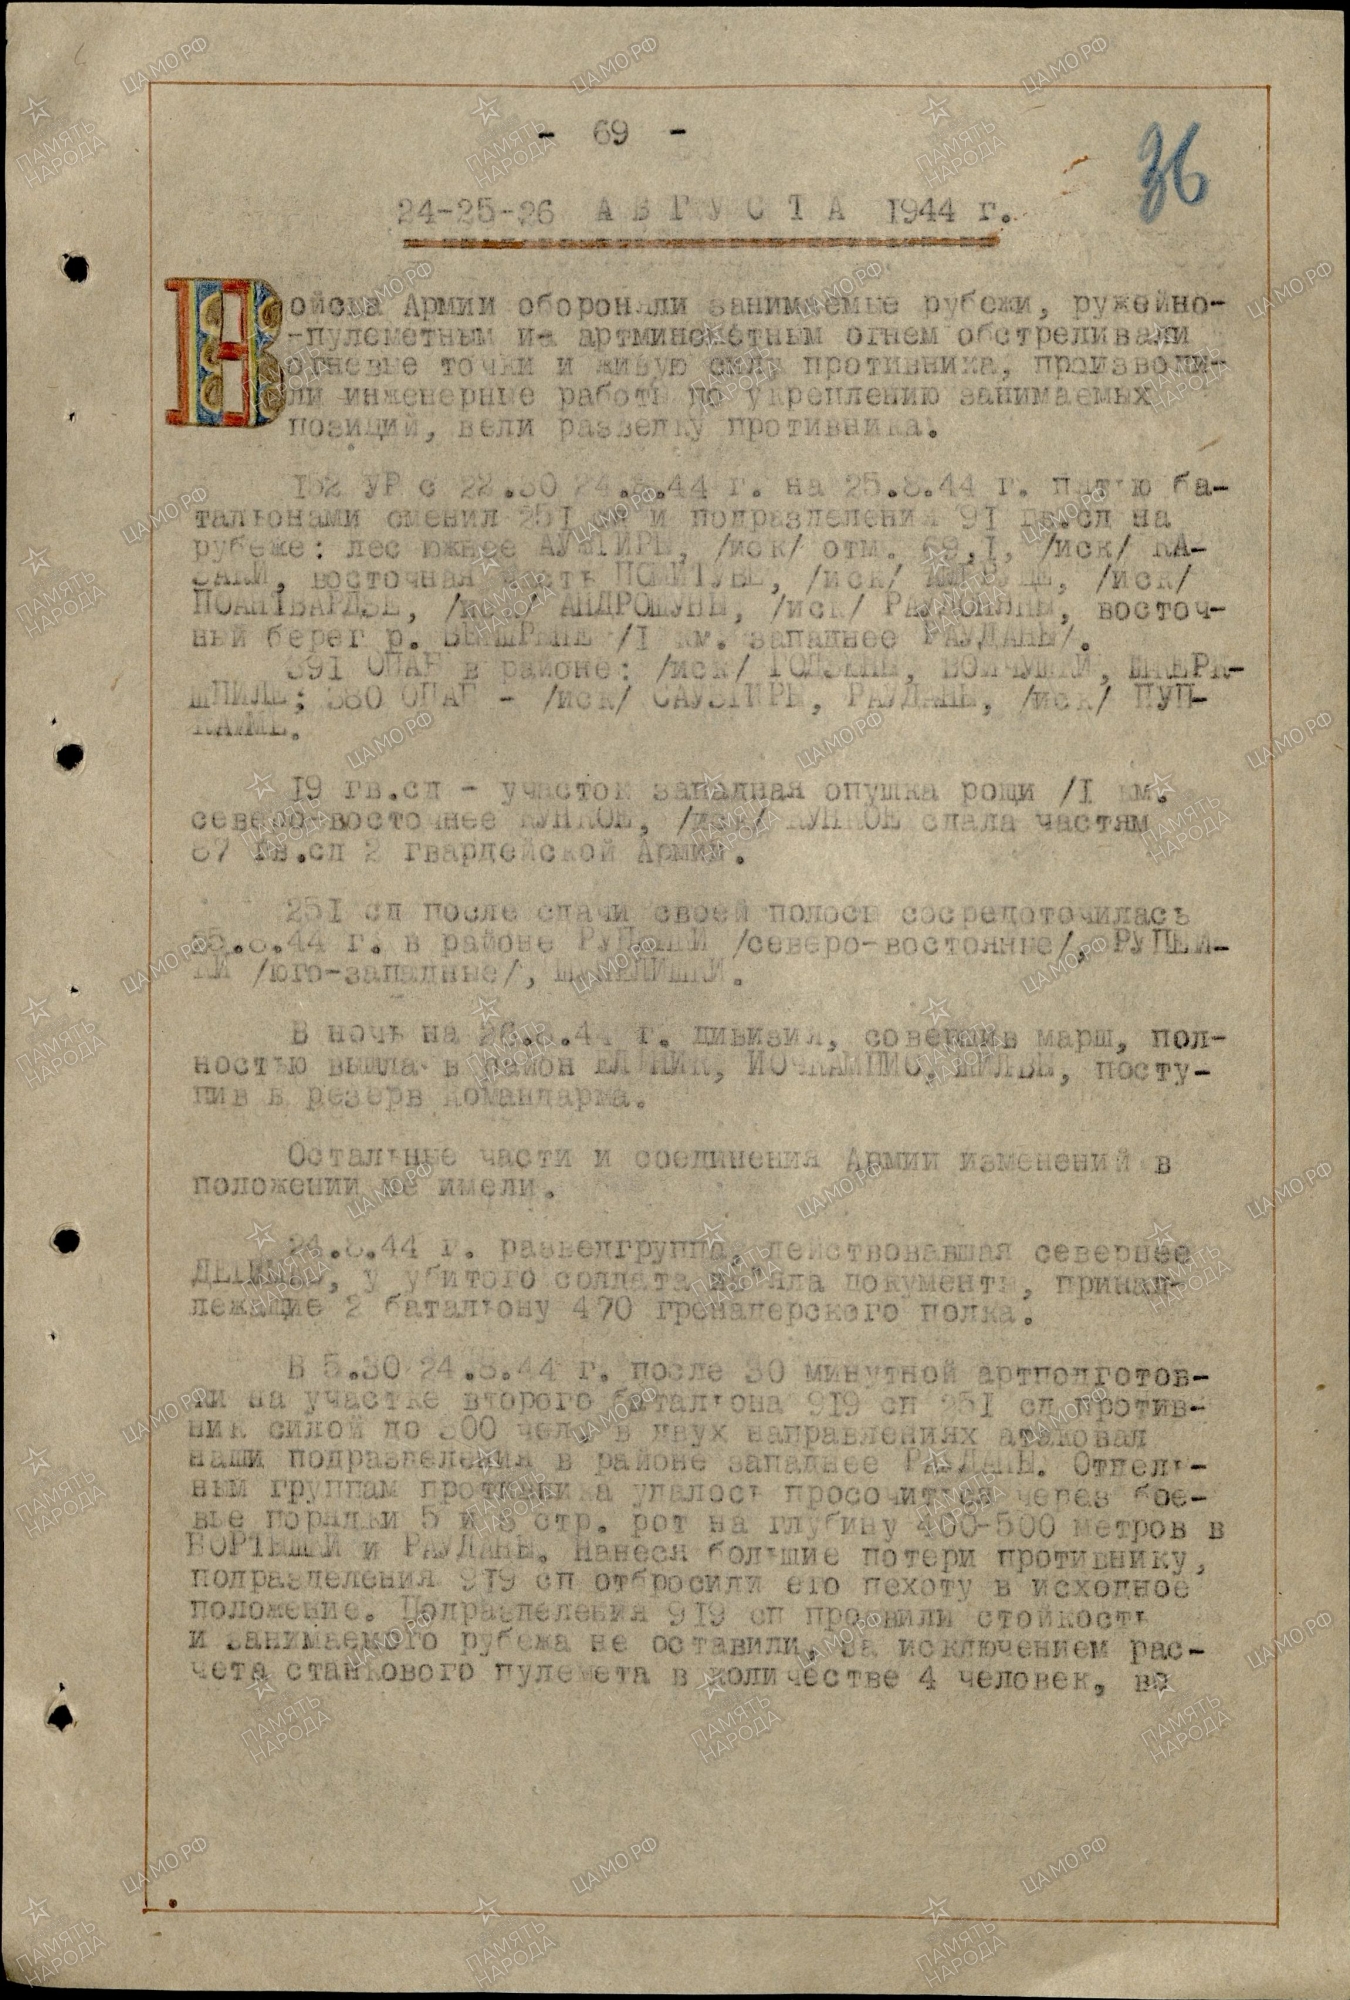 - 69 -
36
24-25-26 АВГУСТА 1944 г.
Войска Армии обороняли занимаемые рубежи, ружейно-
-пулеметным и артминометным огнем обстреливали
огневые точки и живую силу противника, производи-
ли инженерные работы по укреплению занимаемых
позиций, вели разведку противника.
152 УР с 22.30 24.8.44 г. на 25.8.44 г. пятью ба-
тальонами сменил 251 сд и подразделения 91 гв.сд на
рубеже: лес южнее /иск/ отм. 69,1, /иск/ КА-
ЗАКИ, восточная часть /иск/ /иск/
/иск/ АНДРОШУНЫ, /иск/ восточ-
ный берег р. /1 км. западнее РАУДАНЫ/.
391 ОПАБ в районе: /иск/
ШПИЛЕ; 380 ОПАБ - /иск/ РАУДАНЫ, /иск/
19 гв.сд - участок западная опушка рощи /1 км.
северо-восточнее КУНКОЕ, /иск/ КУНКОЕ сдала частям
87 гв.сд 2 гвардейской Армии.
251 сд после сдачи своей полосы сосредоточилась
25.8.44 г. в районе /северо-восточные/,
/юго-западные/,
В ночь на 26.8.44 г. дивизия, совершив марш, пол-
ностью вышла в район посту-
пив в резерв командарма.
Остальные части и соединения Армии изменений в
положении не имели.
24.8.44 г. разведгруппа, действовавшая севернее
у убитого солдата из'яла документы, принад-
лежащие 2 батальону 470 гренадерского полка.
В 5.30 24.8.44 г. после 30 минутной артподготов-
ки на участке второго батальона 919 сп 251 сд против-
ник силой до 300 чел. в двух направлениях атаковал
наши подразделения в районе западнее РАУДАНЫ. Отдель-
ным группам противника удалось просочиться через бое-
вые порядки 5 и 6 стр. рот на глубину 400-500 метров в
и РАУДАНЫ. Нанеся большие потери противнику,
подразделения 919 сп отбросили его пехоту в исходное
положение. Подразделения 919 сп проявили стойкость
и занимаемого рубежа не оставили, за исключением рас-
чета станкового пулемета в количестве 4 человек, во